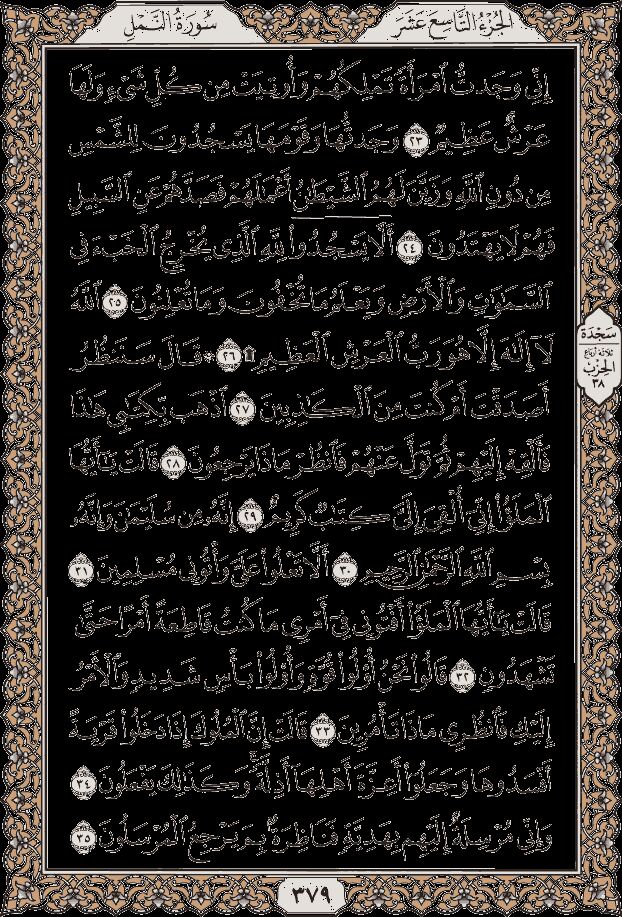 الجُزْءُ التَّاسِعَ عَشَرَ
سُورَةُ النَّمْلِ
إِنِّي وَجَدتُّ ٱمْرَأَةً تَمْلِكُهُمْ وَأُوتِيَتْ مِن كُلِّ شَيْءٍ وَلَهَا
عَرْشٌ عَظِيمٌ ٢٣ وَجَدتُّهَا وَقَوْمَهَا يَسْجُدُونَ لِلشَّمْسِ
مِن دُونِ ٱللَّهِ وَزَيَّنَ لَهُمُ ٱلشَّيْطَٰنُ أَعْمَٰلَهُمْ فَصَدَّهُمْ عَنِ ٱلسَّبِيلِ
فَهُمْ لَا يَهْتَدُونَ ٢٤ أَلَّا يَسْجُدُوا۟ لِلَّهِ ٱلَّذِي يُخْرِجُ ٱلْخَبْءَ فِي
ٱلسَّمَٰوَٰتِ وَٱلْأَرْضِ وَيَعْلَمُ مَا تُخْفُونَ وَمَا تُعْلِنُونَ ٢٥ ٱللَّهُ
لَآ إِلَٰهَ إِلَّا هُوَ رَبُّ ٱلْعَرْشِ ٱلْعَظِيمِ ۩ ٢٦ ۞ قَالَ سَنَنظُرُ
أَصَدَقْتَ أَمْ كُنتَ مِنَ ٱلْكَٰذِبِينَ ٢٧ ٱذْهَب بِّكِتَٰبِي هَٰذَا
فَأَلْقِهْ إِلَيْهِمْ ثُمَّ تَوَلَّ عَنْهُمْ فَٱنظُرْ مَاذَا يَرْجِعُونَ ٢٨ قَالَتْ يَٰٓأَيُّهَا
ٱلْمَلَؤُا۟ إِنِّيٓ أُلْقِيَ إِلَيَّ كِتَٰبٌ كَرِيمٌ ٢٩ إِنَّهُۥ مِن سُلَيْمَٰنَ وَإِنَّهُۥ
بِسْمِ ٱللَّهِ ٱلرَّحْمَٰنِ ٱلرَّحِيمِ ٣٠ أَلَّا تَعْلُوا۟ عَلَيَّ وَأْتُونِي مُسْلِمِينَ ٣١
قَالَتْ يَٰٓأَيُّهَا ٱلْمَلَؤُا۟ أَفْتُونِي فِيٓ أَمْرِي مَا كُنتُ قَاطِعَةً أَمْرًا حَتَّىٰ
تَشْهَدُونِ ٣٢ قَالُوا۟ نَحْنُ أُو۟لُوا۟ قُوَّةٍ وَأُو۟لُوا۟ بَأْسٍ شَدِيدٍ وَٱلْأَمْرُ
إِلَيْكِ فَٱنظُرِي مَاذَا تَأْمُرِينَ ٣٣ قَالَتْ إِنَّ ٱلْمُلُوكَ إِذَا دَخَلُوا۟ قَرْيَةً
أَفْسَدُوهَا وَجَعَلُوٓا۟ أَعِزَّةَ أَهْلِهَآ أَذِلَّةً ۖ وَكَذَٰلِكَ يَفْعَلُونَ ٣٤
وَإِنِّي مُرْسِلَةٌ إِلَيْهِم بِهَدِيَّةٍ فَنَاظِرَةٌۢ بِمَ يَرْجِعُ ٱلْمُرْسَلُونَ ٣٥
سَجْدَة
ثلاثة أرباع
الحِزْب
٣٨
٣٧٩